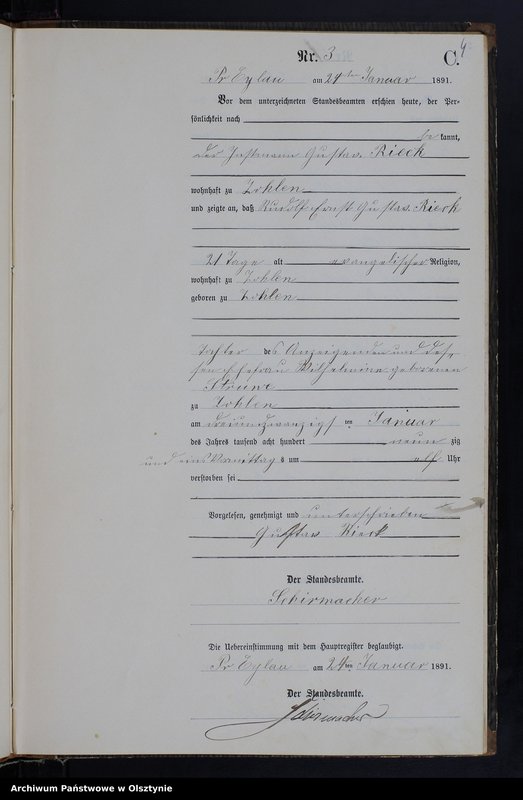 4
Nr. 3 C.
Pr Eylau am 24ten Januar 1891.
Vor dem unterzeichneten Standesbeamten erschien heute, der Per-
sönlichkeit nach
be kannt,
der Instmann Gustav Rieck
wohnhaft zu Zohlen
und zeigte an, daß Rudolf Ernst Gustav Rieck
21 Tage alt evangelischer Religion,
wohnhaft zu Zohlen
geboren zu Zohlen
des Anzeigenden und des-
sen Ehefrau Wilhelmine geborenen
zu Zohlen
am dreiundzwanzigsten Januar
des Jahres tausend acht hundert neun zig
und eins Vormittag s um elf Uhr
verstorben sei
Vorgelesen, genehmigt und unterschrieben
Gustav Rieck
Der Standesbeamte.
Schirmacher
Die Uebereinstimmung mit dem Hauptregister beglaubigt.
Pr Eylau am 24ten Januar 1891.
Der Standesbeamte.
Schirmacher
Archiwum Państwowe w Olsztynie